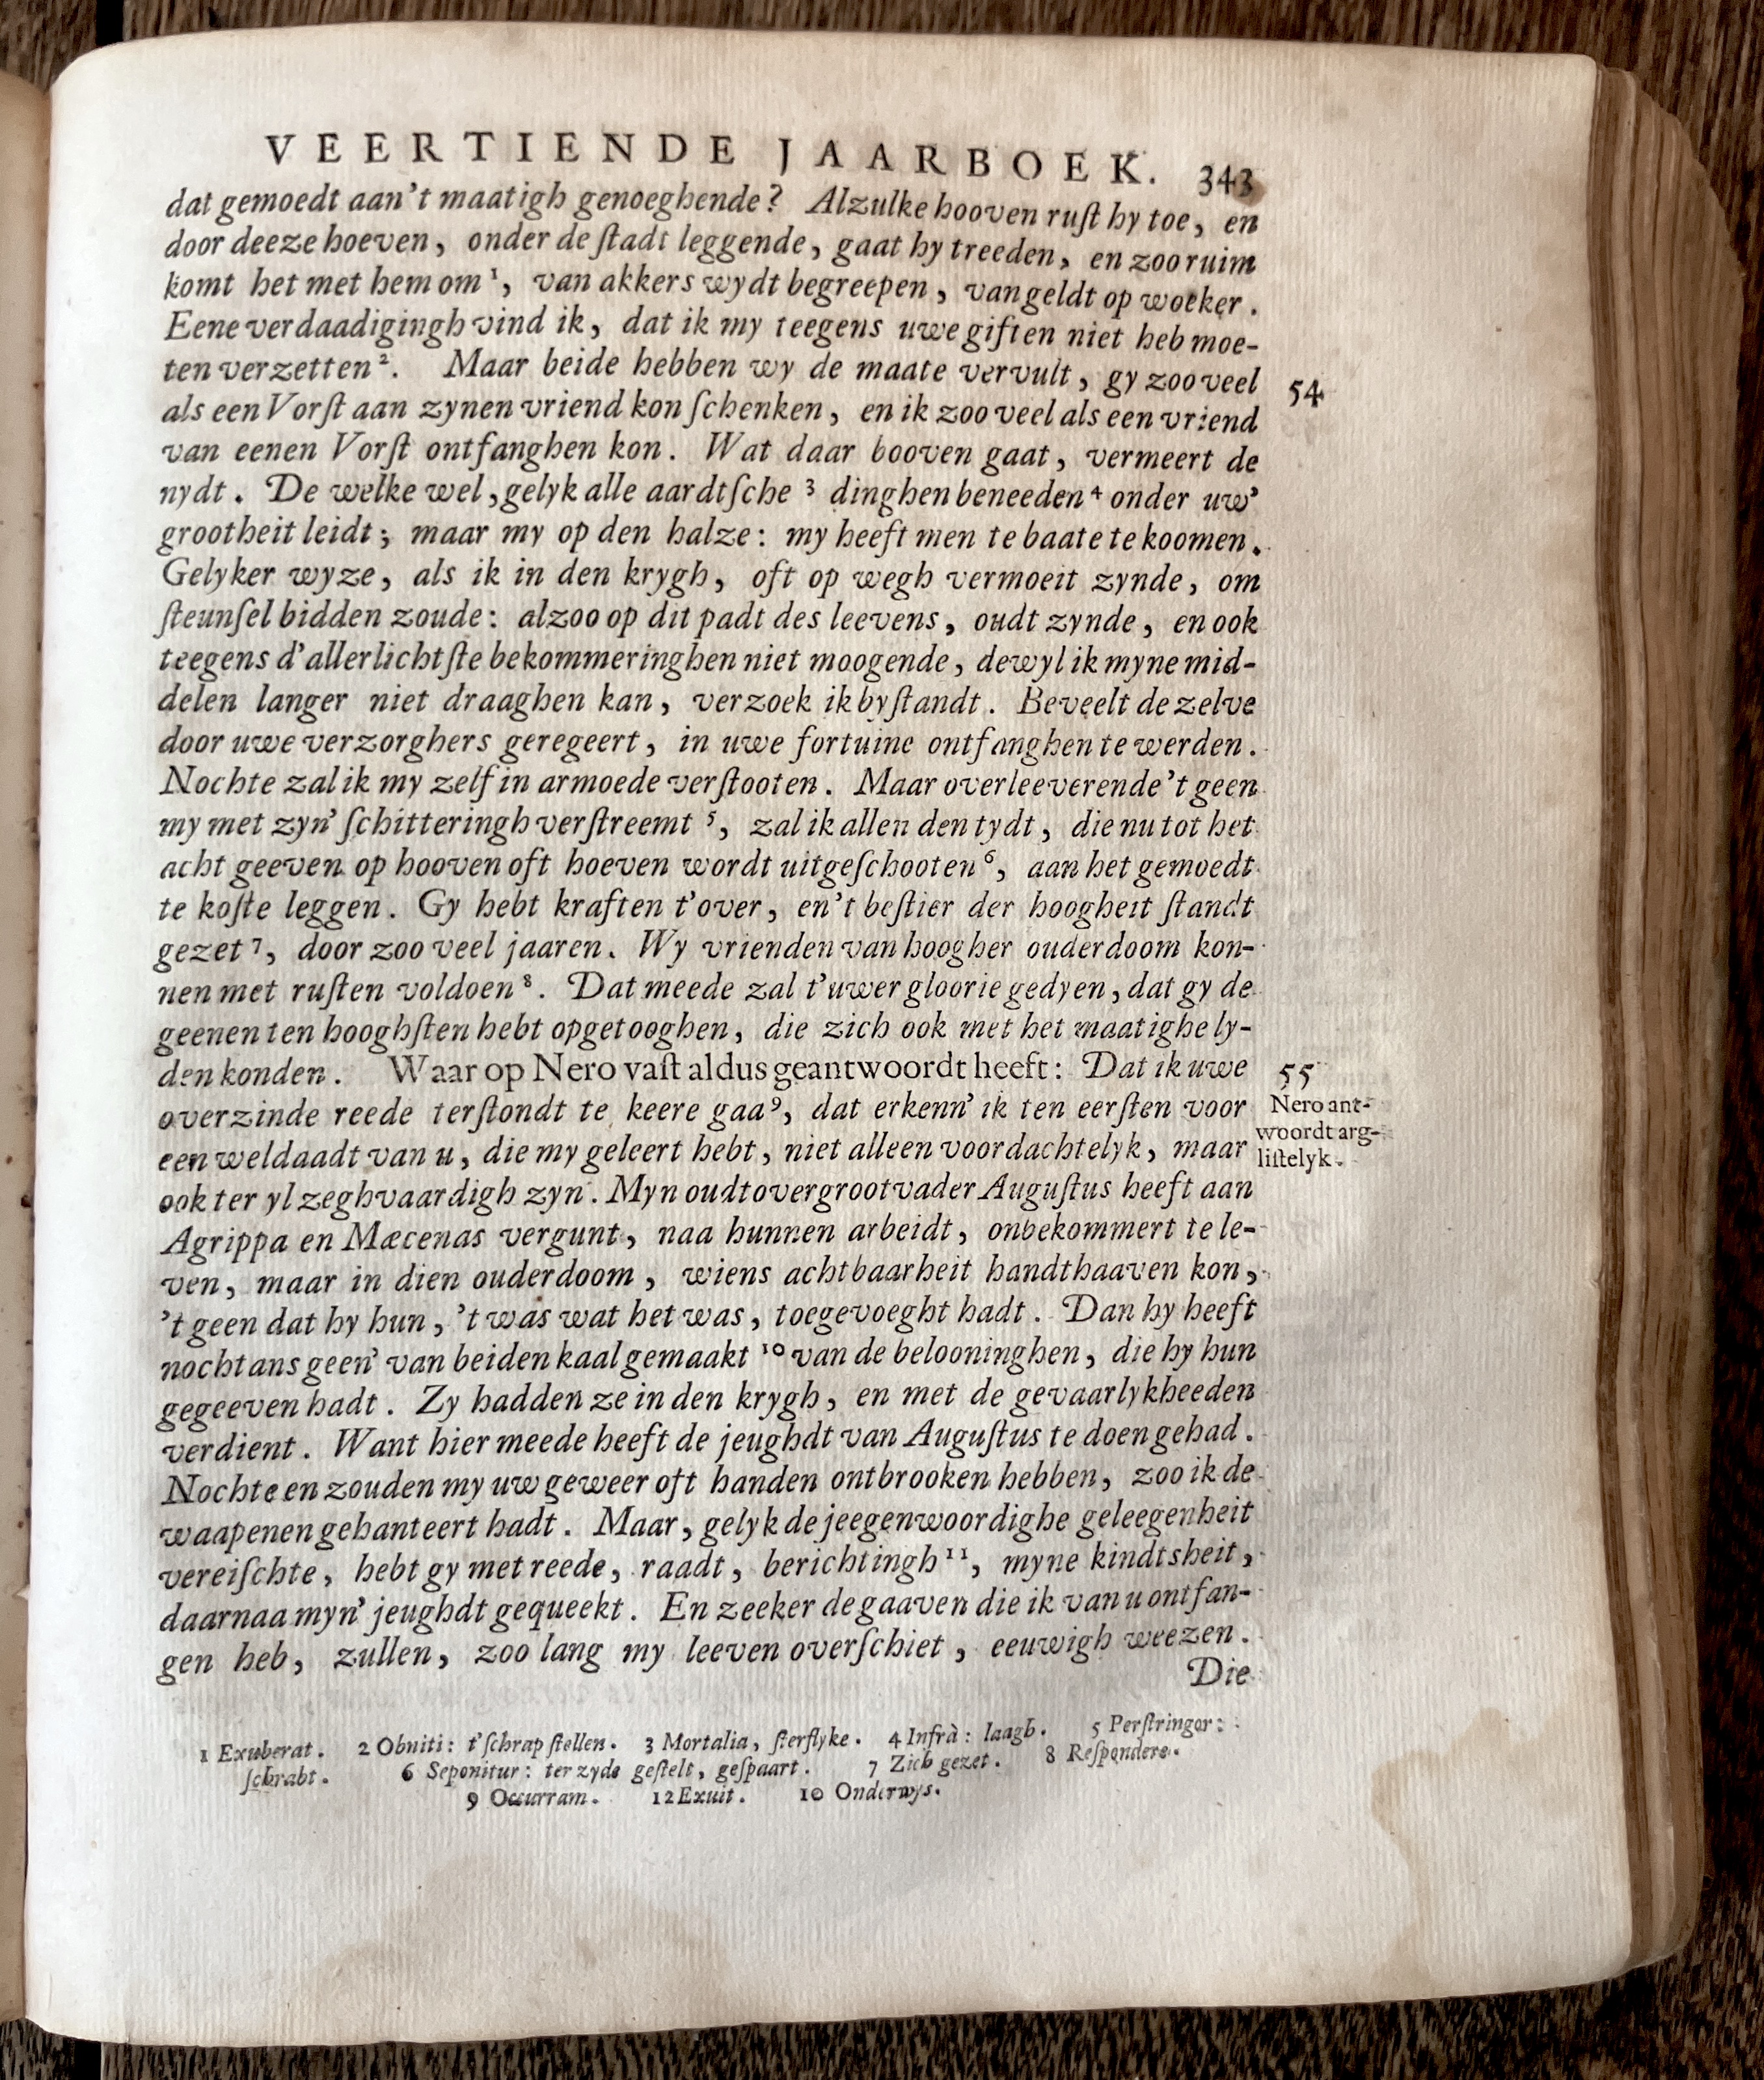 VEERTIENDE JAARBOEK. 343
dat gemoedt aan't maatigh genoeghende? Alzulke hooven ruſt hy toe, en
door deeze hoeven, onder de ſtadt leggende, gaat hy treeden, en zoo ruim
komt het met hem om ¹, van akkers wydt begreepen, van geldt op woeker.
Eene verdaadigingh vind ik, dat ik my teegens uwe giften niet heb moe-
ten verzetten ². Maar beide hebben wy de maate vervult, gy zoo veel
54
als een Vorſt aan zynen vriend kon ſchenken, en ik zoo veel als een vriend
van eenen Vorſt ontfanghen kon. Wat daar booven gaat, vermeert de
nydt. De welke wel, gelyk alle aardtſche ³ dinghen beneeden ⁴ onder uw'
grootheit leidt; maar my op den halze: my heeft men te baate te koomen.
Gelyker wyze, als ik in den krygh, oft op wegh vermoeit zynde, om
ſteunſel bidden zoude: alzoo op dit padt des leevens, oudt zynde, en ook
teegens d'allerlichtſte bekommeringhen niet moogende, dewyl ik myne mid-
delen langer niet draaghen kan, verzoek ik byſtandt. Beveelt de zelve
door uwe verzorghers geregeert, in uwe fortuine ontfanghen te werden.
Nochte zal ik my zelf in armoede verſtooten. Maar overleeverende 't geen
my met zyn' ſchitteringh verſtreemt ⁵, zal ik allen den tydt, die nu tot het
acht geeven op hooven oft hoeven wordt uitgeſchooten ⁶, aan het gemoedt
te koſte leggen. Gy hebt kraften t'over, en 't beſtier der hoogheit ſtandt
gezet ⁷, door zoo veel jaaren. Wy vrienden van hoogher ouderdoom kon-
nen met ruſten voldoen ⁸. Dat meede zal t'uwer gloorie gedyen, dat gy de
geenen ten hooghſten hebt opgetooghen, die zich ook met het maatighe ly-
den konden. Waar op Nero vaſt aldus geantwoordt heeft: Dat ik uwe
55
overzinde reede terſtondt te keere gaa ⁹, dat erkenn' ik ten eerſten voor
Nero ant-
een weldaadt van u, die my geleert hebt, niet alleen voordachtelyk, maar
woordt arg-
liſtelyk.
ook ter yl zeghvaardigh zyn. Myn oudtovergrootvader Auguſtus heeft aan
Agrippa en Mæcenas vergunt, naa hunnen arbeidt, onbekommert te le-
ven, maar in dien ouderdoom, wiens achtbaarheit handthaaven kon,
't geen dat hy hun, 't was wat het was, toegevoeght hadt. Dan hy heeft
nochtans geen' van beiden kaal gemaakt ¹⁰ van de belooninghen, die hy hun
gegeeven hadt. Zy hadden ze in den krygh, en met de gevaarlykheeden
verdient. Want hier meede heeft de jeughdt van Auguſtus te doen gehad.
Nochte en zouden my uw geweer oft handen ontbrooken hebben, zoo ik de
waapenen gehanteert hadt. Maar, gelyk de jeegenwoordighe geleegenheit
vereiſchte, hebt gy met reede, raadt, berichtingh ¹¹, myne kindtsheit,
daarnaa myn' jeughdt gequeekt. En zeeker de gaaven die ik van u ontfan-
gen heb, zullen, zoo lang my leeven overſchiet, eeuwigh weezen.
Die
1 Exuberat. 2 Obniti: t'ſchrap ſtellen. 3 Mortalia, ſterflyke. 4 Infrà: laagh. 5 Perſtringor:
ſchrabt. 6 Seponitur: ter zyde geſtelt, geſpaart. 7 Zich gezet. 8 Reſpondere.
9 Occurram. 12 Exuit. 10 Onderwys.